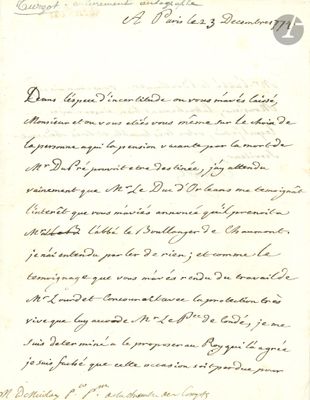 Turgot - entièrement autographe
A Paris le 23 Decembre 1774
Dans l'espece d'incertitude ou vous m'avés laissé,
Monsieur et ou vous etiés vous même sur le choix de
la personne a qui la pension vacante par la mort de
Mr. DuPré pouvoit etre destinée, j'ay attendu
vainement que Mr. Le Duc d'Orleans me temoignât
l'interêt que vous m'aviés annoncé qu'il prenoit a
Mr. l'abbé le Boullenger de Chaumont.
je n'ai entendu parler de rien; et comme le
temoignage que vous m'avés rendu du travail de
Mr. Lourdet Concouroit avec la protection tres
vive que luy accorde Mr. Le Pce. de Condé, je me
suis determiné a le proposer au Roy qui l'a agréé
je suis faché que cette occasion soit perdue pour
M. De Nicolay Pr. Pnt. a la chambre des Comptes